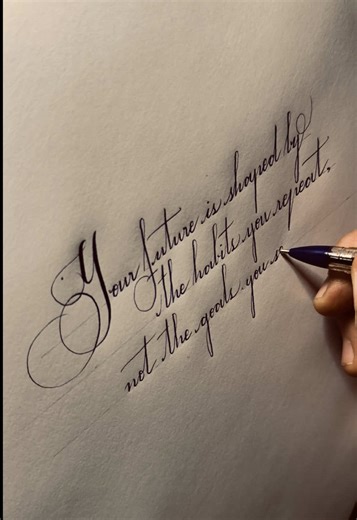 Your future is shaped by
the habits you repeat,
not the goals you s